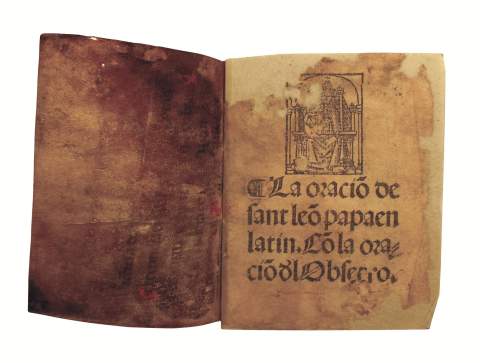 ¶ La oraciõ de
sant leõ papa en
latin. Cõ la ora⸗
ciõ dl Obsecro.